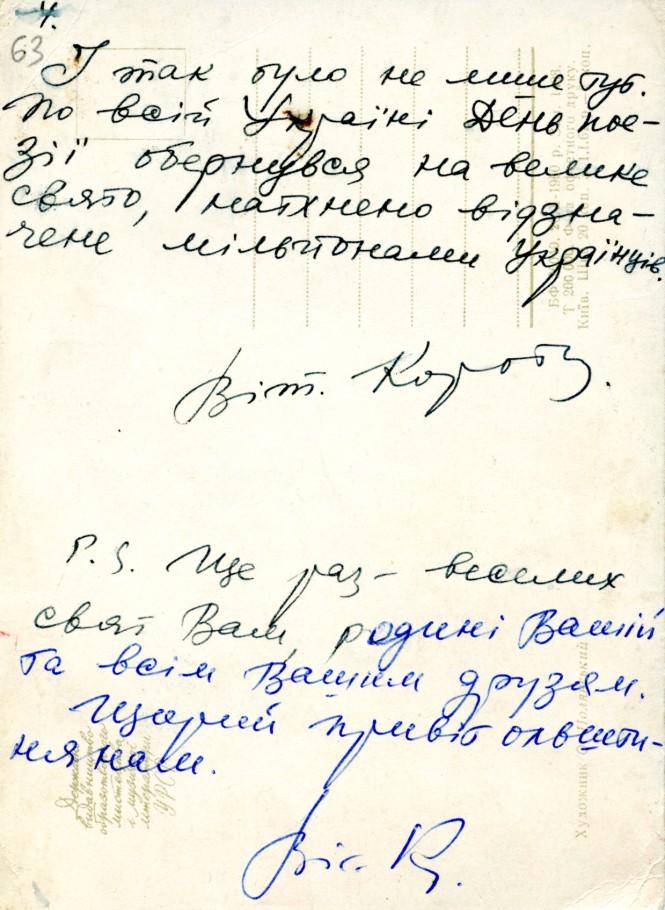 4.
63
І так було не лише тут.
По всій Україні День пое-
зії обернувся на велике
свято, натхнено відзна-
чене мільйонами Українців.
Віт. Корот
P.S. Ще раз – веселих
свят Вам, родині Вашій
та всім Вашим друзям.
Щирий привіт ольшти-
нянам.
Віт. К
Державне
видавництво
образотворчого
мистецтва
і музичної
літератури
УРСР
Художник